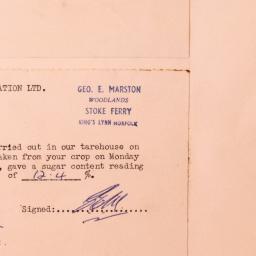 ATION LTD.
GEO. E. MARSTON
WOODLANDS
STOKE FERRY
KING'S LYNN NORFOLK
rried out in our tarehouse on
aken from your crop on Monday
, gave a sugar content reading
of 12.4 %.
Signed: